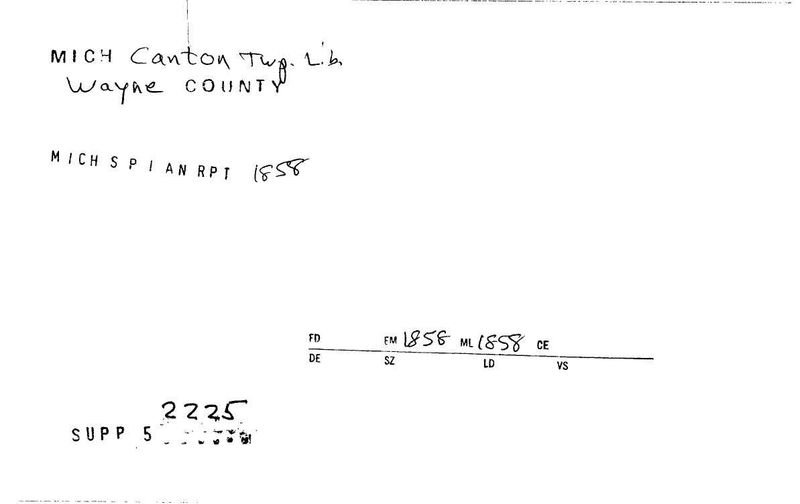 MICH Canton Twp. Lib.
Wayne COUNTY
MICH S P I AN RPT 1858
FD EM 1858 ML 1858 CE
DE SZ LD VS
2225
SUPP 5